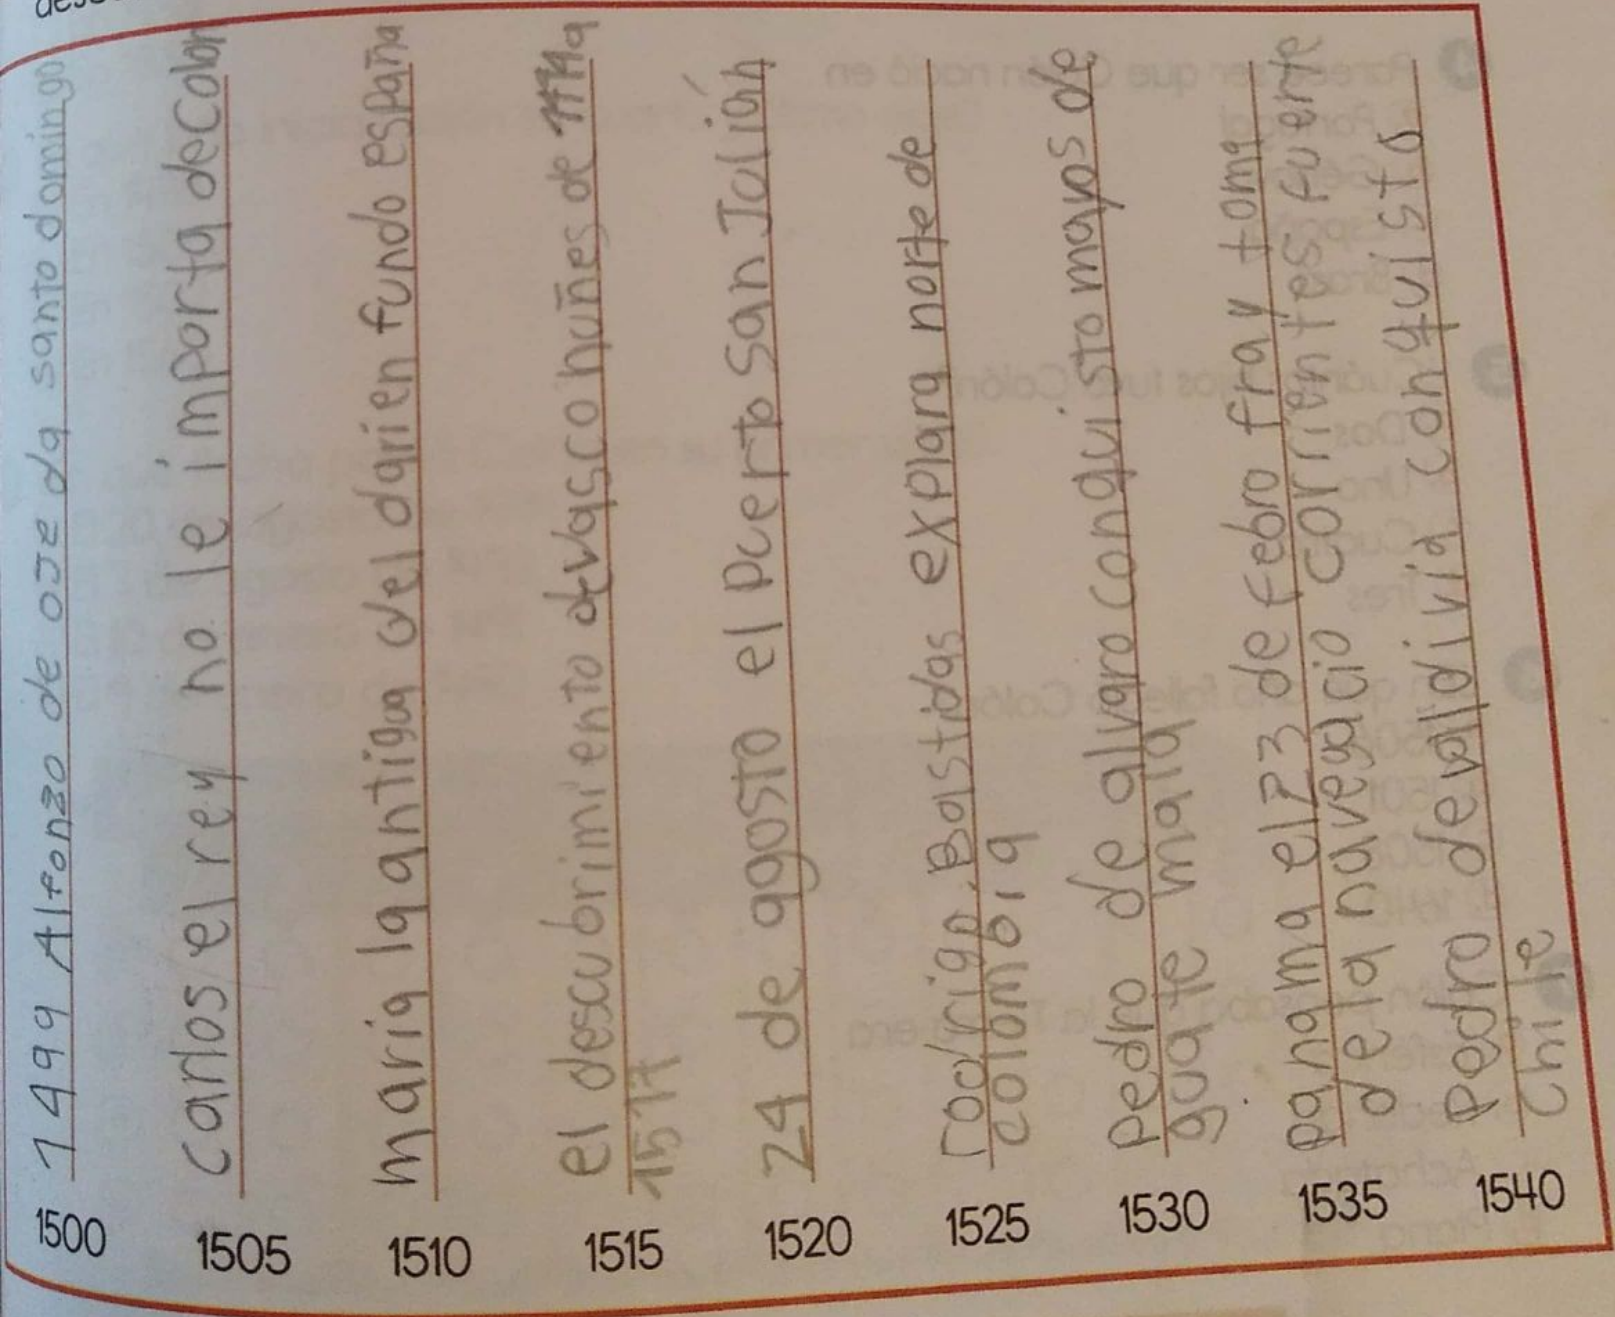 1499 Alfonzo de oje da santo domingo
1500
carlos el rey no le importa de colon
1505
maria la antigua del darien fundo españa
1510
el descubrimiento de vasco nuñes de
1517
1515
24 de agosto el puerto san Julián
1520
rodrigo. Bastidas explara norte de
colombia
1525
pedro de alvaro conqui sto mayas de
guate mala
1530
panama el 23 de febro fray toma
de la navegacio corrientes fuerte
1535
pedro de valdivia conquisto
chile
1540